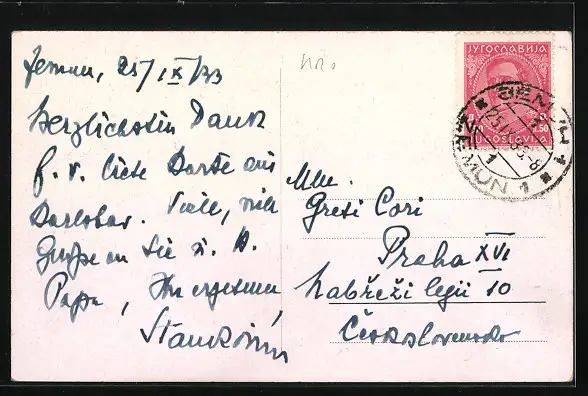 Zemun, 25/IX/33
Herzlichsten Dank
f. d. liebe Karte aus
Karlsbad. Viele, viele
Grüsse an Sie u. H.
Papa, Ihr ergebener
Stanković
Mlle.
Greti Cori
Praha XVI
Nabřeží legií 10
Československo
ЈУГОСЛАВИЈА
ЗЕМУН 1
ZEMUN 1